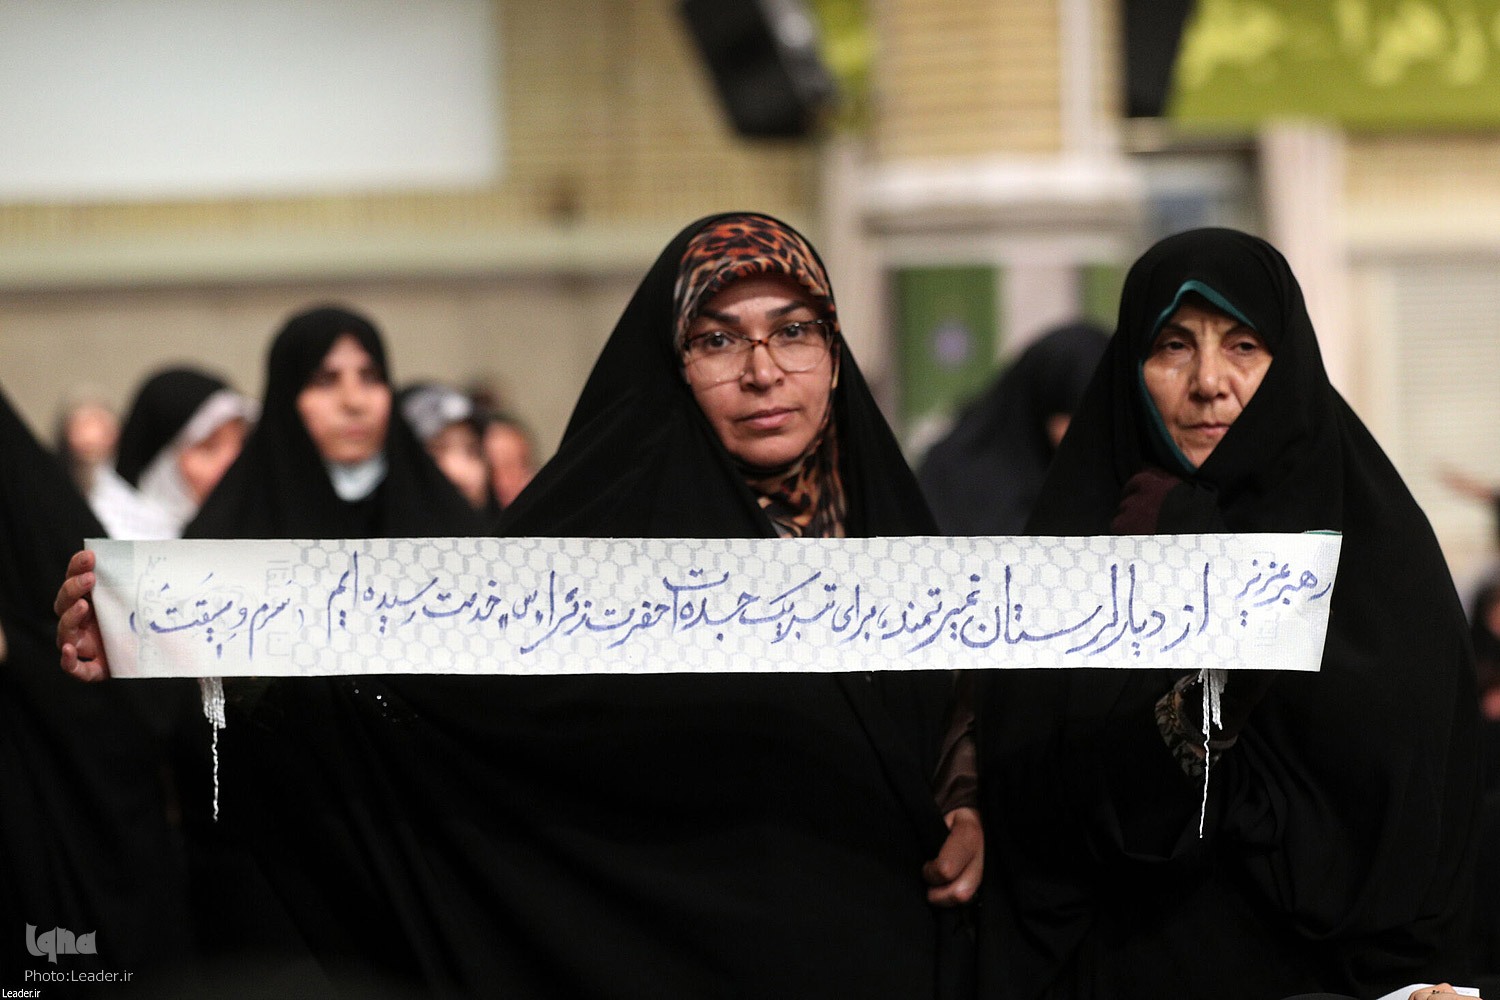 زهرا
رهبر عزیز از دیار لرستان غیرتمند، برای تبریک جده‌ات حضرت زهرا "س" خدمت رسیده ایم
Iqna
Photo:Leader.ir
Leader.ir